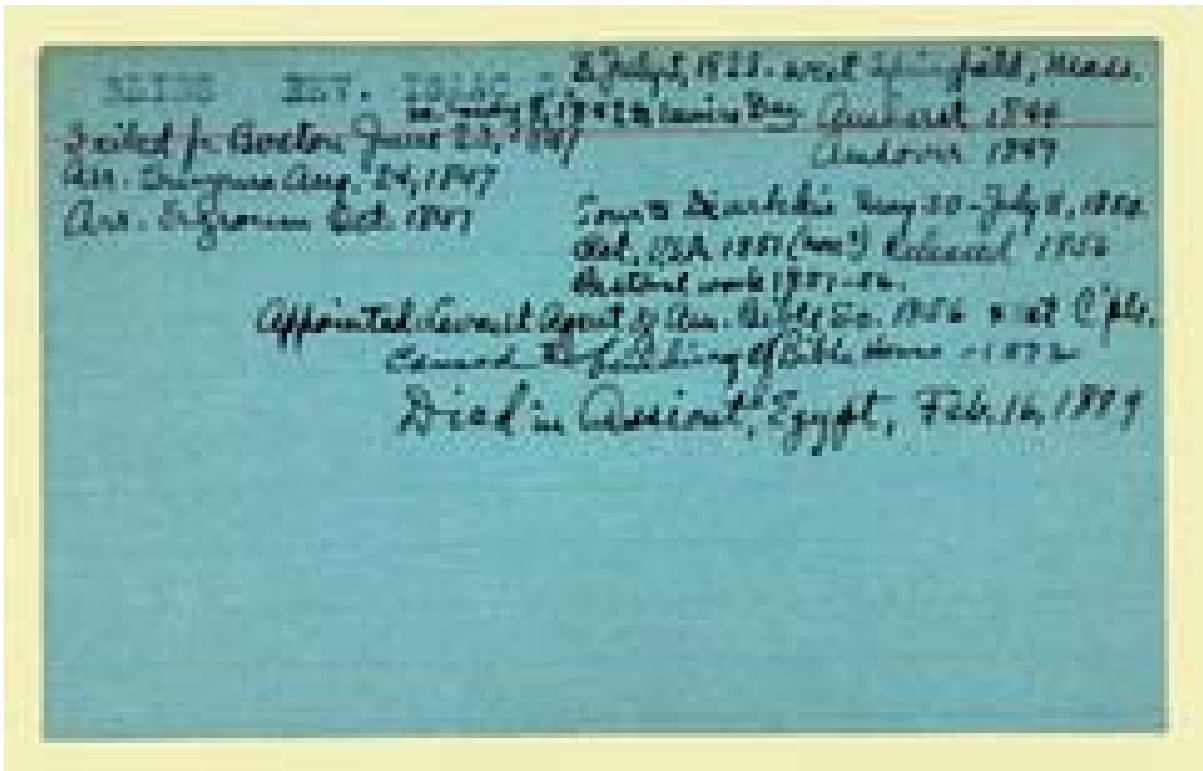 REV. ISAAC G.
B. July 5, 1822 - West Springfield, Mass.
1842 Day Amherst 1844
Sailed fr Boston June 23, 1847
Andover 1847
Arr. Smyrna Aug. 24, 1847
Arr. Erzroum Oct. 1847
Tour to Diarbekir May 20 - July 8, 1850
Ret. USA 1851 Released 1856
Pastoral work 1851-56.
Appointed Levant Agent of Am. Bible So. 1856 at C'ple.
Caused the building of Bible House - 1872
Died in Assiout, Egypt, Feb. 16, 1889